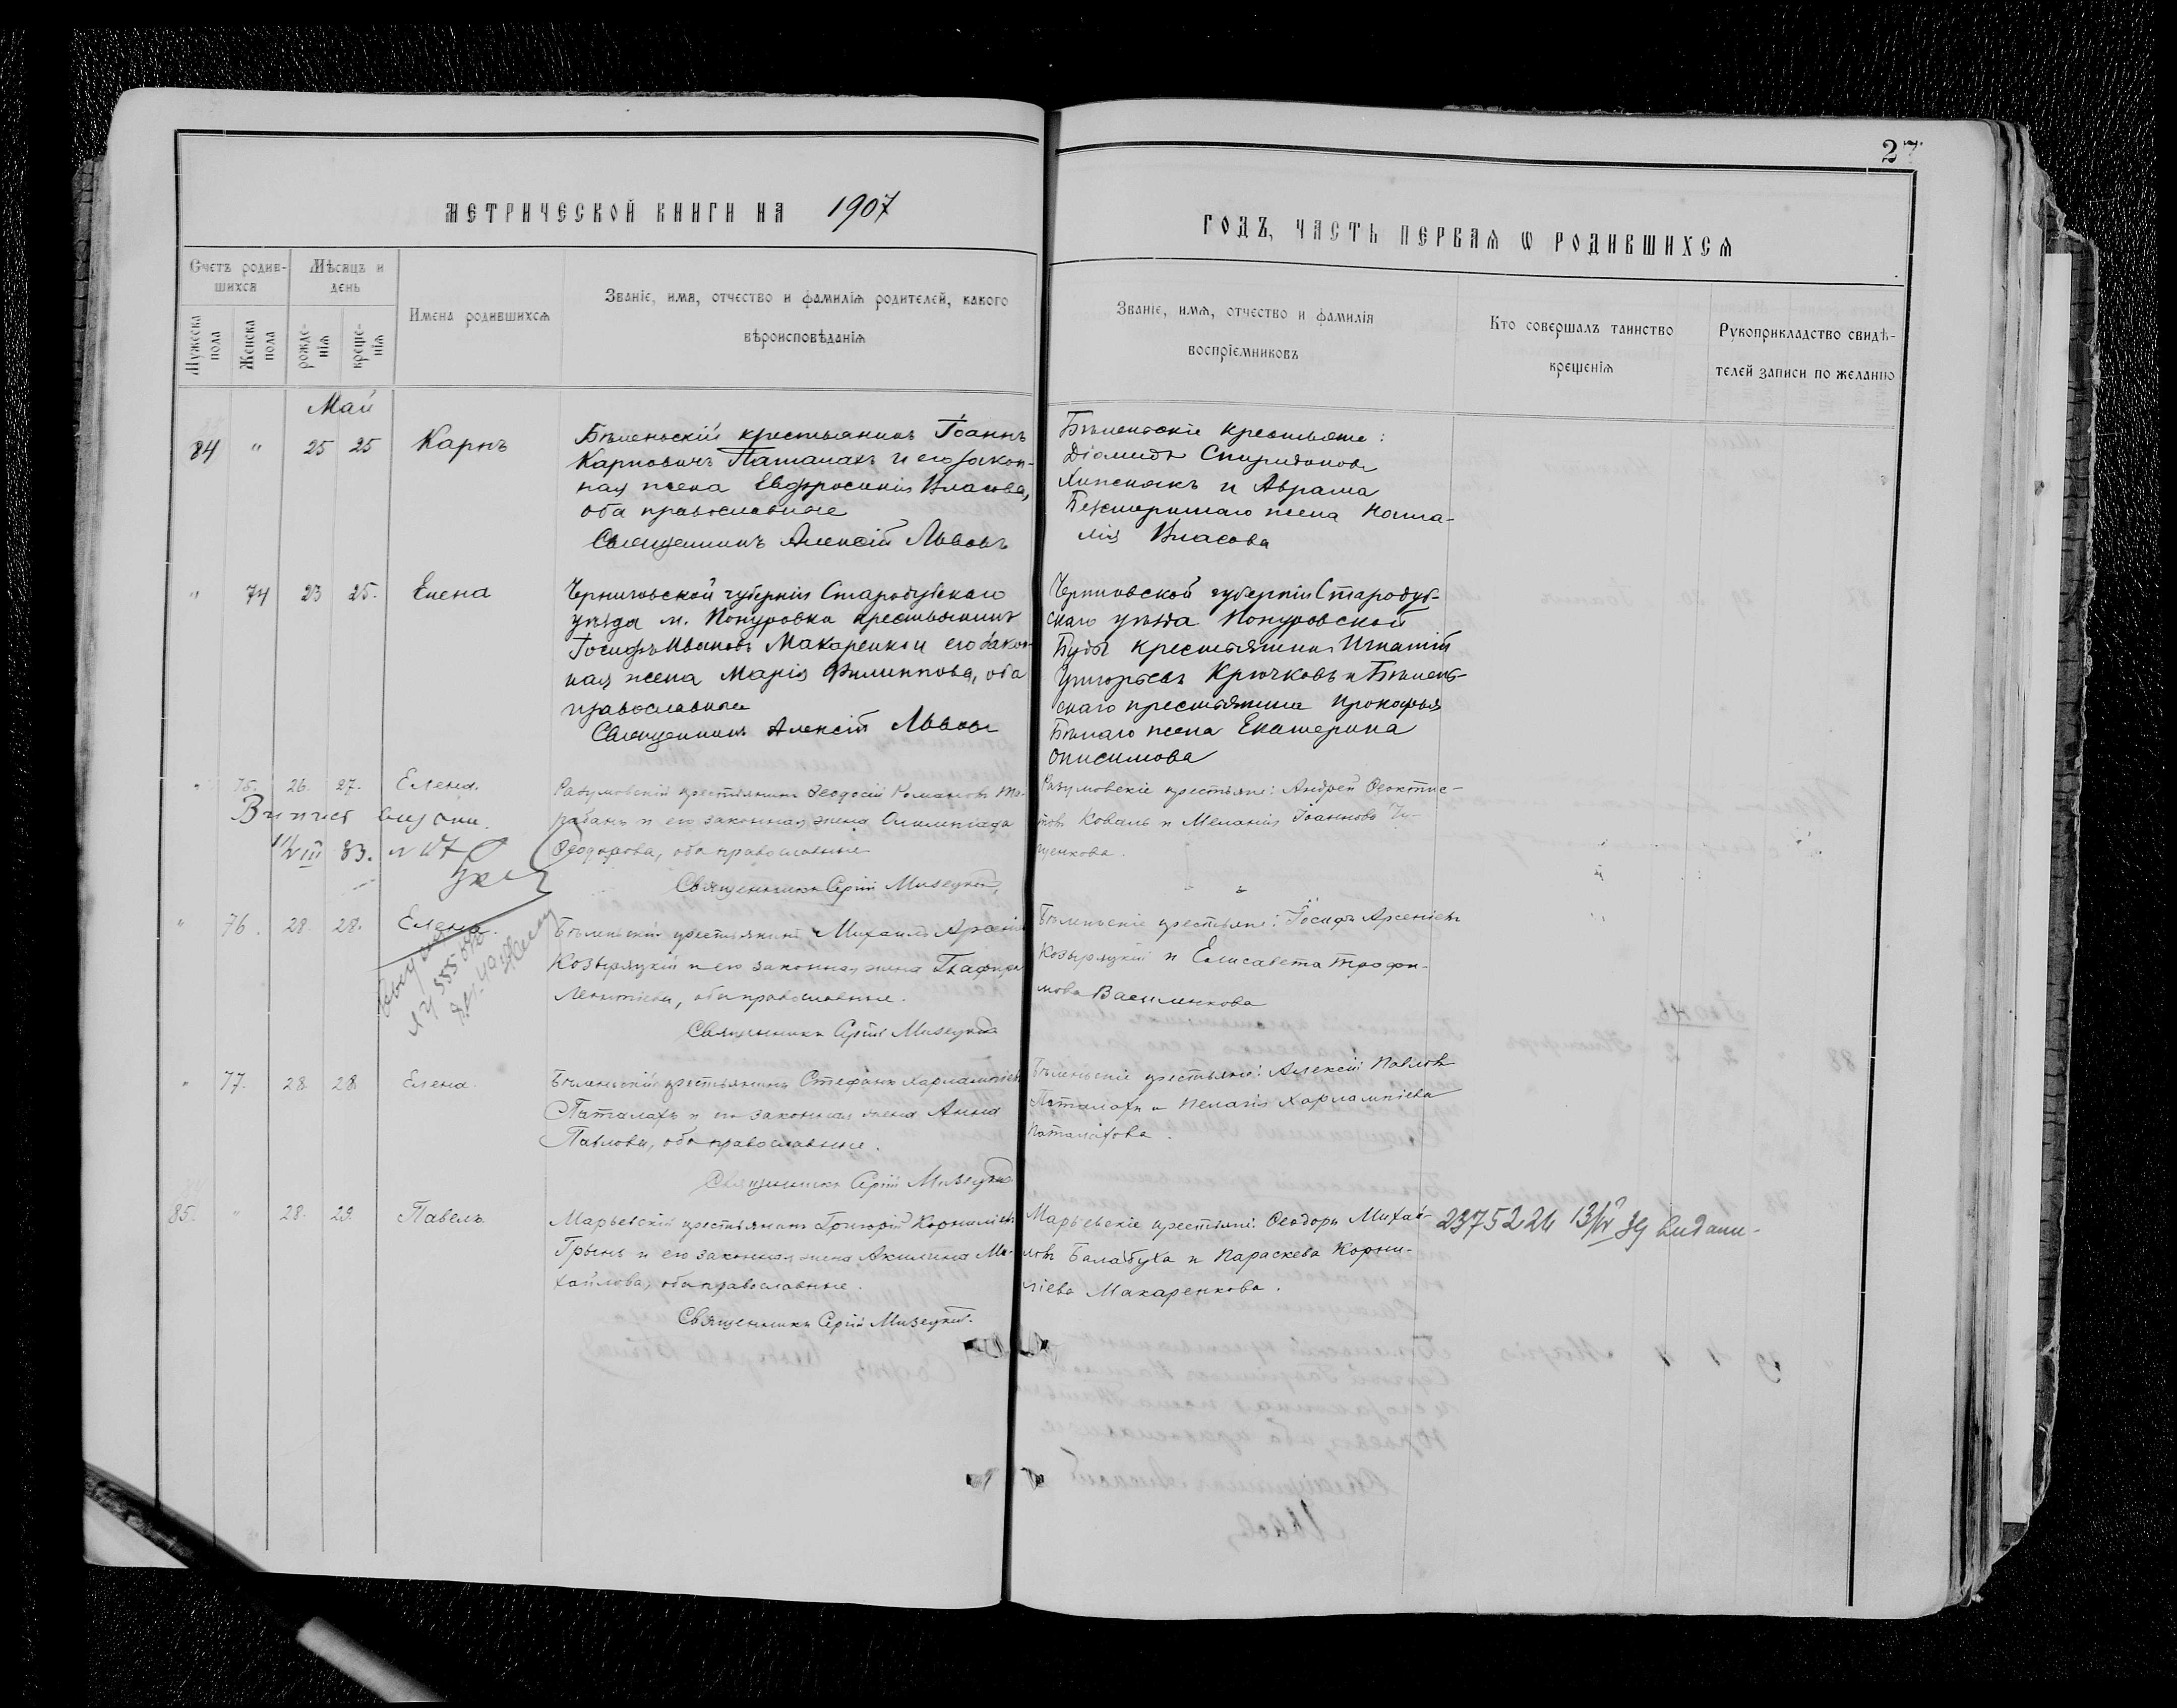 27
МЕТРИЧЕСКОЙ КНИГИ НА 1907
ГОДЪ, ЧАСТЬ ПЕРВАЯ Ѡ РОДИВШИХСЯ
Счетъ родив-
шихся
Мѣсяцъ и
день
Мужеска
пола
Женска
пола
рожде-
нія
креще-
нія
Имена родившихся
Званіе, имя, отчество и фамилія родителей, какого
вѣроисповѣданія
Званіе, имя, отчество и фамилія
воспріемниковъ
Кто совершалъ таинство
крещенія
Рукоприкладство свидѣ-
телей записи по желанію
Май
84 " 25 25 Карпъ
Бѣленьскій крестьянинъ Іоаннъ
Карповичъ Паталахъ и его закон-
ная жена Евфросинія Власова,
оба православные
Священникъ Алексій Львовъ
Бѣленьскіе крестьяне:
Діомидъ Спиридоновъ
и Аврама
жена Ната-
лія Власова
" 74 23 25. Елена
Черниговской губерніи Стародубскаго
уѣзда м. Понуровка крестьянинъ
Іосифъ Ивановъ Макаренко и его закон-
ная жена Марія Филиппова, оба
православные
Священникъ Алексій Львовъ
Черниговской губерніи Стародуб-
скаго уѣзда Понуровской
Буды крестьянинъ Игнатій
Григорьевъ Крючковъ и Бѣлень-
скаго крестьянина Прокофья
Бѣлаго жена Екатерина
Онисимова
" 75. 26. 27. Елена.
Разумовскій крестьянинъ Ѳеодосій Романовъ Та-
рабанъ и его законная жена Олимпіада
Ѳеодорова, оба православные
Священникъ Сергій Мизецкій.
Разумовскіе крестьяне: Андрей Ѳеоктис-
товъ Коваль и Меланія Іоаннова Чу-
щенкова.
83. № 47
" 76. 28. 28. Елена.
Бѣленьскій крестьянинъ Михаилъ Арсеніевъ
Козыряцкій и его законная жена Глафира
Леонтіева, оба православные.
Священникъ Сергій Мизецкій
Бѣленьскіе крестьяне: Іосифъ Арсеніевъ
Козыряцкій и Елисавета Трофи-
мова Василенкова
" 77. 28. 28 Елена.
Бѣленьскій крестьянинъ Стефанъ Харлампіевъ
Паталахъ и его законная жена Анна
Павлова, оба православные.
Священникъ Сергій Мизецкій.
Бѣленьскіе крестьяне: Алексій Павловъ
Паталахъ и Пелагія Харлампіева
Паталахова.
85. " 28. 29. Павелъ
Марьевскій крестьянинъ Григорій Корниліевъ
Грынь и его законная жена Акилина Ми-
хайлова, оба православные.
Священникъ Сергій Мизецкій.
Марьевскіе крестьяне: Ѳеодоръ Михай-
ловъ Балабуха и Параскева Корни-
ліева Макаренкова.